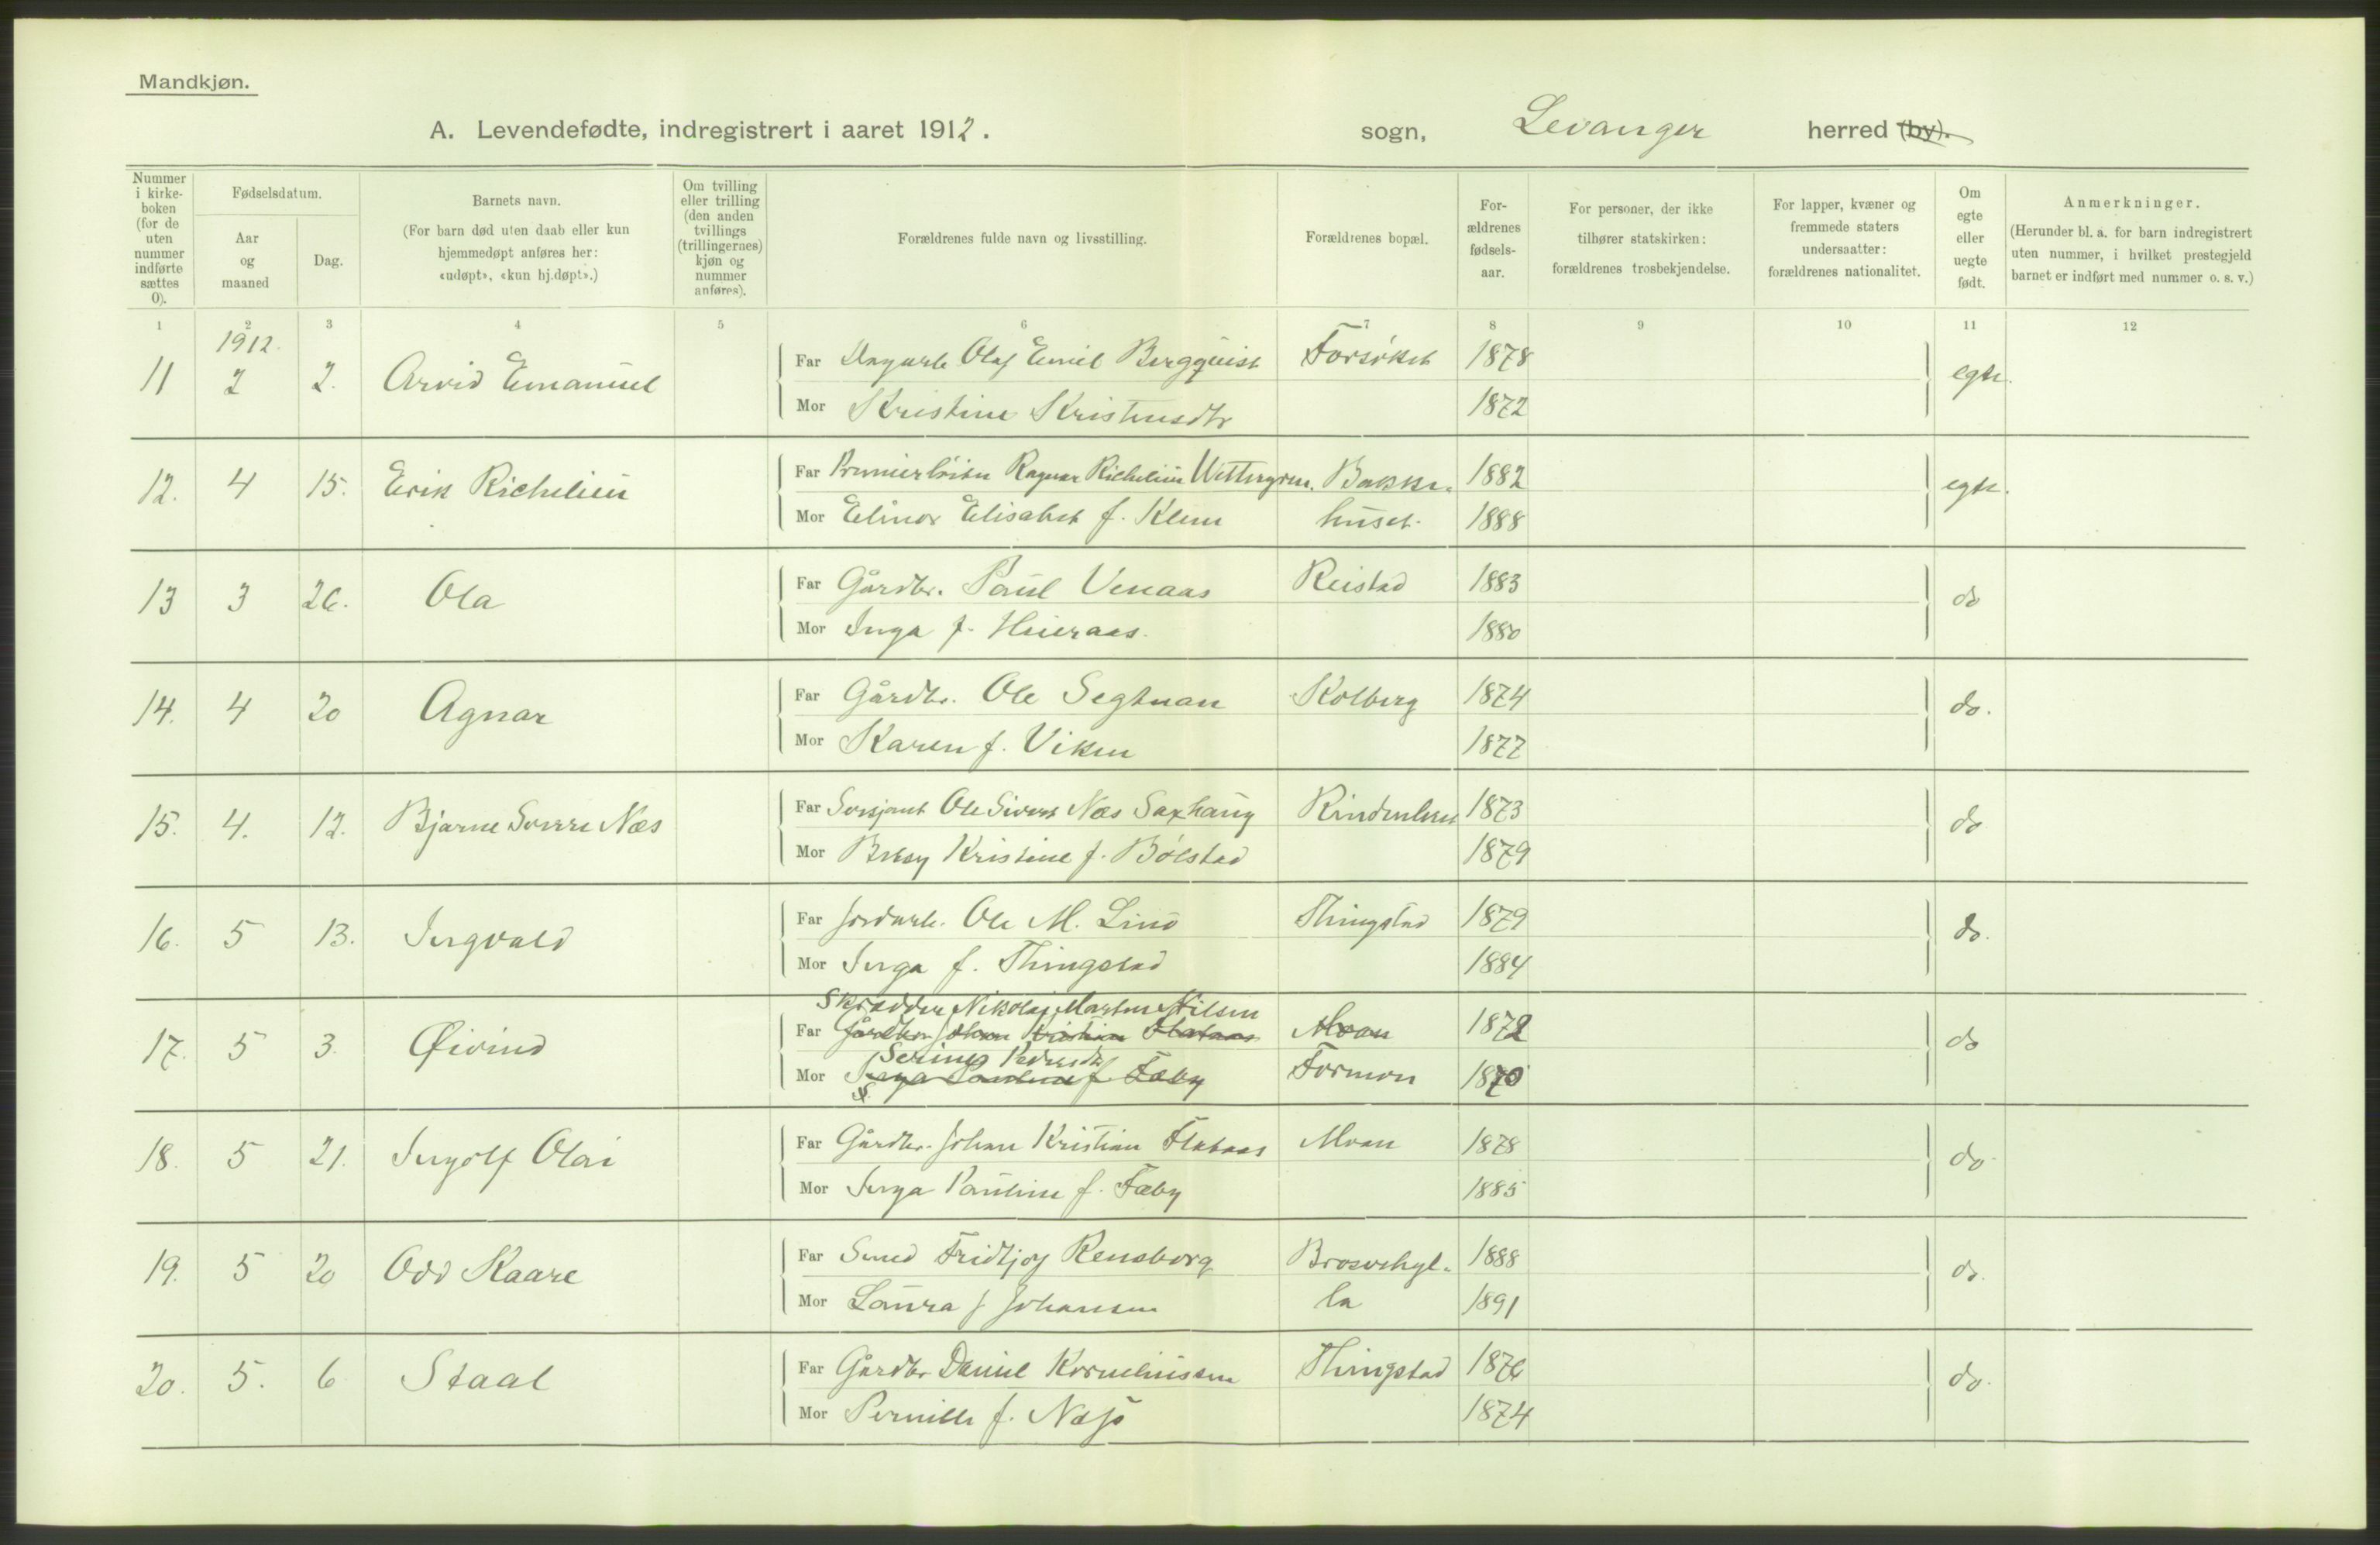 Mandkjøn.
A. Levendefødte, indregistrert i aaret 1912. sogn, Levanger herred (by).
Nummer i kirke-boken (for de uten nummer indførte sættes 0).
Fødselsdatum.
Aar og maaned
Dag.
Barnets navn.
(For barn død uten daab eller kun hjemmedøpt anføres her: «udøpt», «kun hj.døpt».)
Om tvilling eller trilling (den anden tvillings (trillingernes) kjøn og nummer anføres).
Forældrenes fulde navn og livsstilling.
Forældrenes bopæl.
For-ældrenes fødsels-aar.
For personer, der ikke tilhører statskirken: forældrenes trosbekjendelse.
For lapper, kvæner og fremmede staters undersaatter: forældrenes nationalitet.
Om egte eller uegte født.
Anmerkninger.
(Herunder bl. a. for barn indregistrert uten nummer, i hvilket prestegjeld barnet er indført med nummer o. s. v.)
1 2 3 4 5 6 7 8 9 10 11 12
1912.
11 2 2. Arvid Emanuel Far Olaf Emil Bergquist Forsøket 1878 egte.
Mor Kristine Kristensdtr 1872
12. 4 15. Erik Richelieu Far Premierløitn Ragnar Richelieu Wettergren. Bakke- 1882 egte.
Mor Elinor Elisabet f. Klem huset. 1888
13 3 26. Ola Far Gårdbr. Paul Venaas Reistad 1883 do
Mor Inga f. 1880
14. 4 20 Agnar Far Gårdbr. Ole Segtnan Kolberg 1874 do.
Mor Karen f. Viken 1877
15. 4. 12. Bjarne Sverre Næs Far Sersjant Ole Sivert Næs Saxhaug Rindenleret 1873 do
Mor Betsy Kristine f. Bølstad 1879
16. 5 13. Ingvald Far Jordarb. Ole M. Lino Thingstad 1879 do.
Mor Inga f. Thingstad 1884
Skrædder Nikolai Martin Nilsen
17. 5 3. Øivind Far Gårdbr. Johan Kristian Flataas Moan 1872 do
Serine Pedersdtr
Mor Inga Pauline f. Fæby Formon 1870
18. 5 21. Ingolf Olai Far Gårdbr. Johan Kristian Flataas Moan 1878 do.
Mor Inga Pauline f. Fæby 1885
19. 5 20 Odd Kaare Far Smed Fridtjof Rensborg Brosvehyl- 1888 do.
Mor Laura f Johansen la 1891
20. 5. 6 Staal Far Gårdbr Daniel Korneliussen Thingstad 1876 do.
Mor Pernille f. 1874